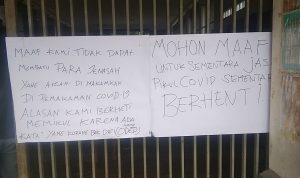 MAAF KAMI TIDAK DAPAT
MEMBATU PARA JENASAH
YANG AKAN DI MAKAMKAN
DI PEMAKAMAN COVID-19
ALASAN KAMI BERHETI
MEMIKUL KARENA ADA
KATA" YANG KURANG
MOHON MAAF
UNTUK SEMENTARA JASA
PIKUL COVID SEMENTARA
BERHENTI!